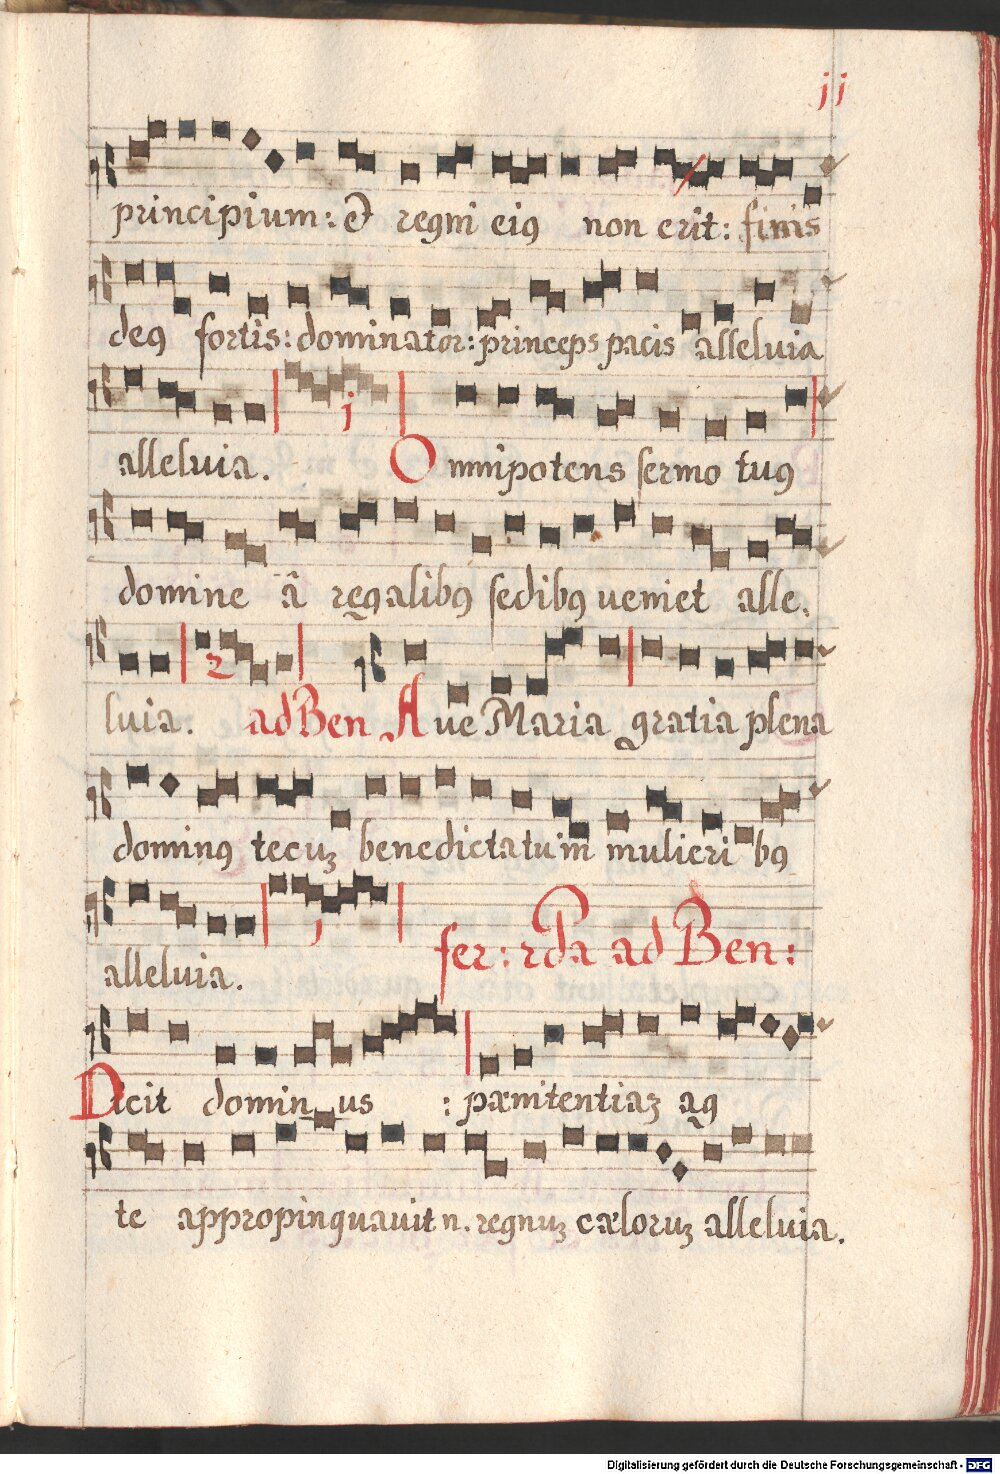 jj
principium: & regni eiꝯ non erit: finis
deꝯ fortis: dominator: princeps pacis alleluia
j
alleluia. Omnipotens sermo tuꝯ
domine â regalibꝯ sedibꝯ ueniet alle,
2
luia. ad Ben Aue Maria gratia plena
dominꝯ tecuʒ benedicta tu in mulieribꝯ
alleluia. fer: 2da ad Ben:
Dicit dominus : pænitentiaʒ agꝯ
te appropinquauit n. regnuʒ cæloruʒ alleluia.
Digitalisierung gefördert durch die Deutsche Forschungsgemeinschaft - DFG